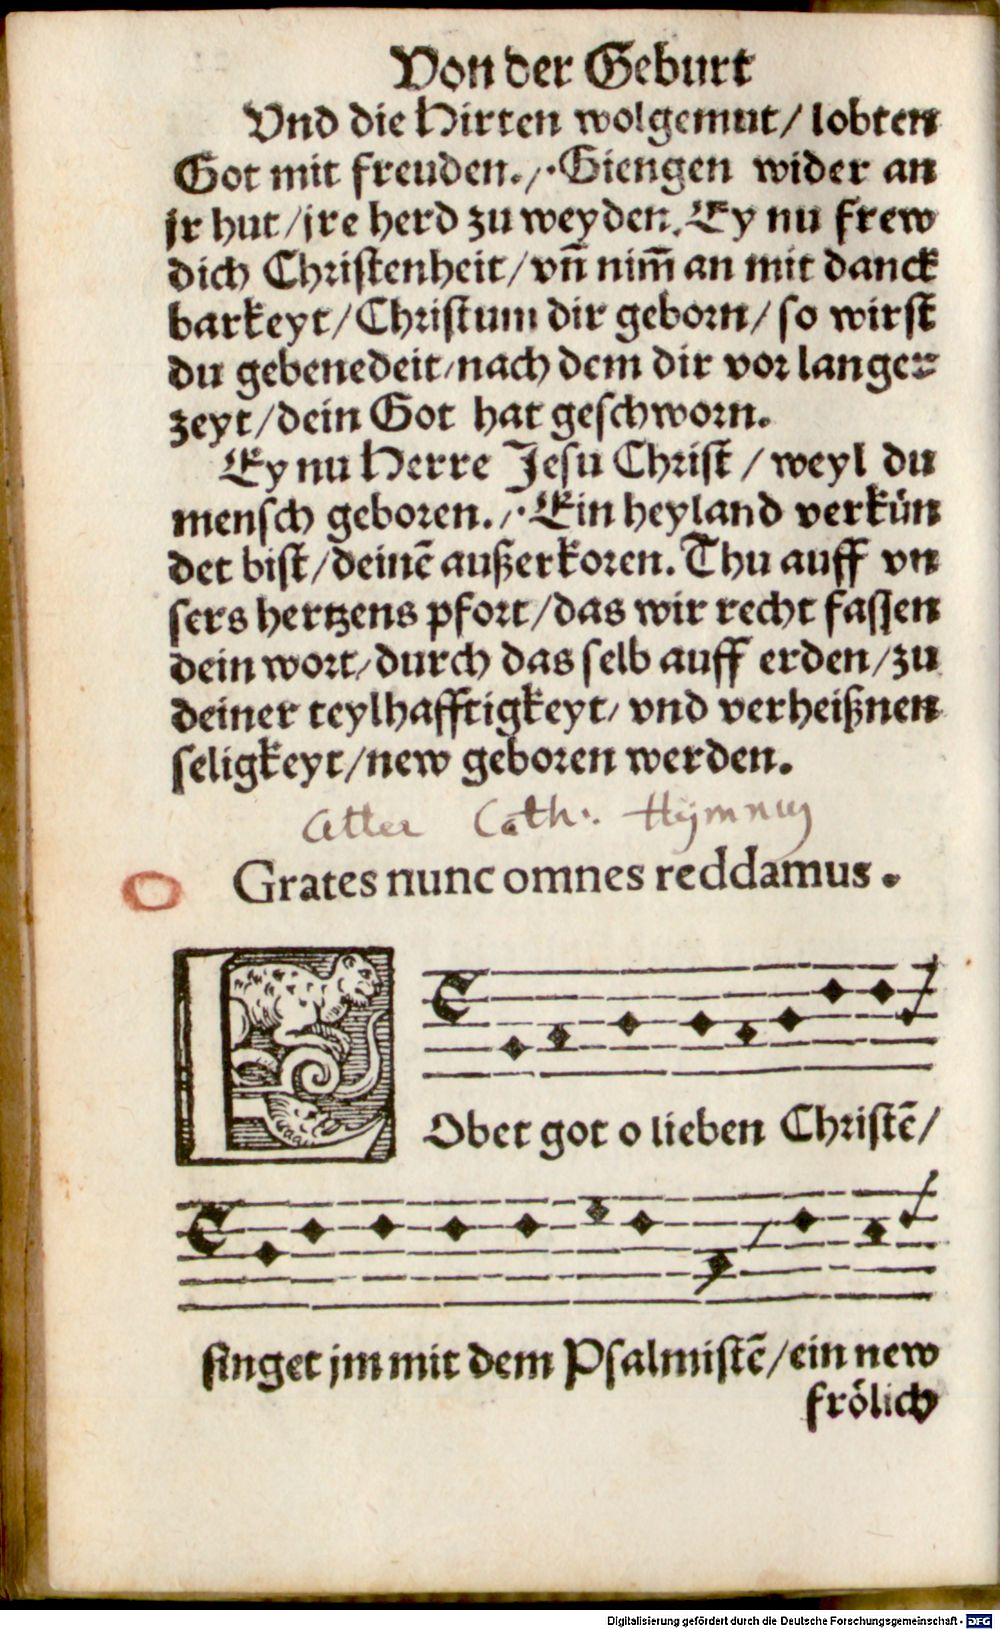 Von der Geburt
Vnd die Hirten wolgemut/ lobten
Got mit freuden./. Giengen wider an
jr hut/jre herd zu weyden. Ey nu frew
dich Christenheit/ vñ nim̄ an mit danck
barkeyt/ Christum dir geborn/ so wirst
du gebenedeit/nach dem dir vor langer=
zeyt/dein Got hat geschworn.
Ey nu Herre Jesu Christ / weyl du
mensch geboren./. Ein heyland verkün
det bist/deinē außerkoren. Thu auff vn
sers hertzens pfort/das wir recht fassen
dein wort/durch das selb auff erden/zu
deiner teylhafftigkeyt/ vnd verheißnen
seligkeyt/new geboren werden.
Alter Cath. Hymnus
Grates nunc omnes reddamus.
LObet got o lieben Christē/
singet jm mit dem Psalmistē/ein new
frölich
Digitalisierung gefördert durch die Deutsche Forschungsgemeinschaft - DFG